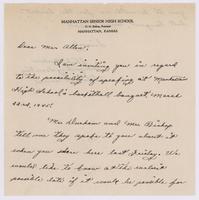 MANHATTAN SENIOR HIGH SCHOOL
MANHATTAN, KANSAS
Dear Mr. Allen:
I am writing you in regard
to the possibility of speaking at Manhattan
High School's basketball banquet March
22nd, 1945.
Mr. Durham and Mr. Bishop
tell me they spoke to you about it
when you were here last Friday. We
would like to know at the earliest
possible date if it would be possible for